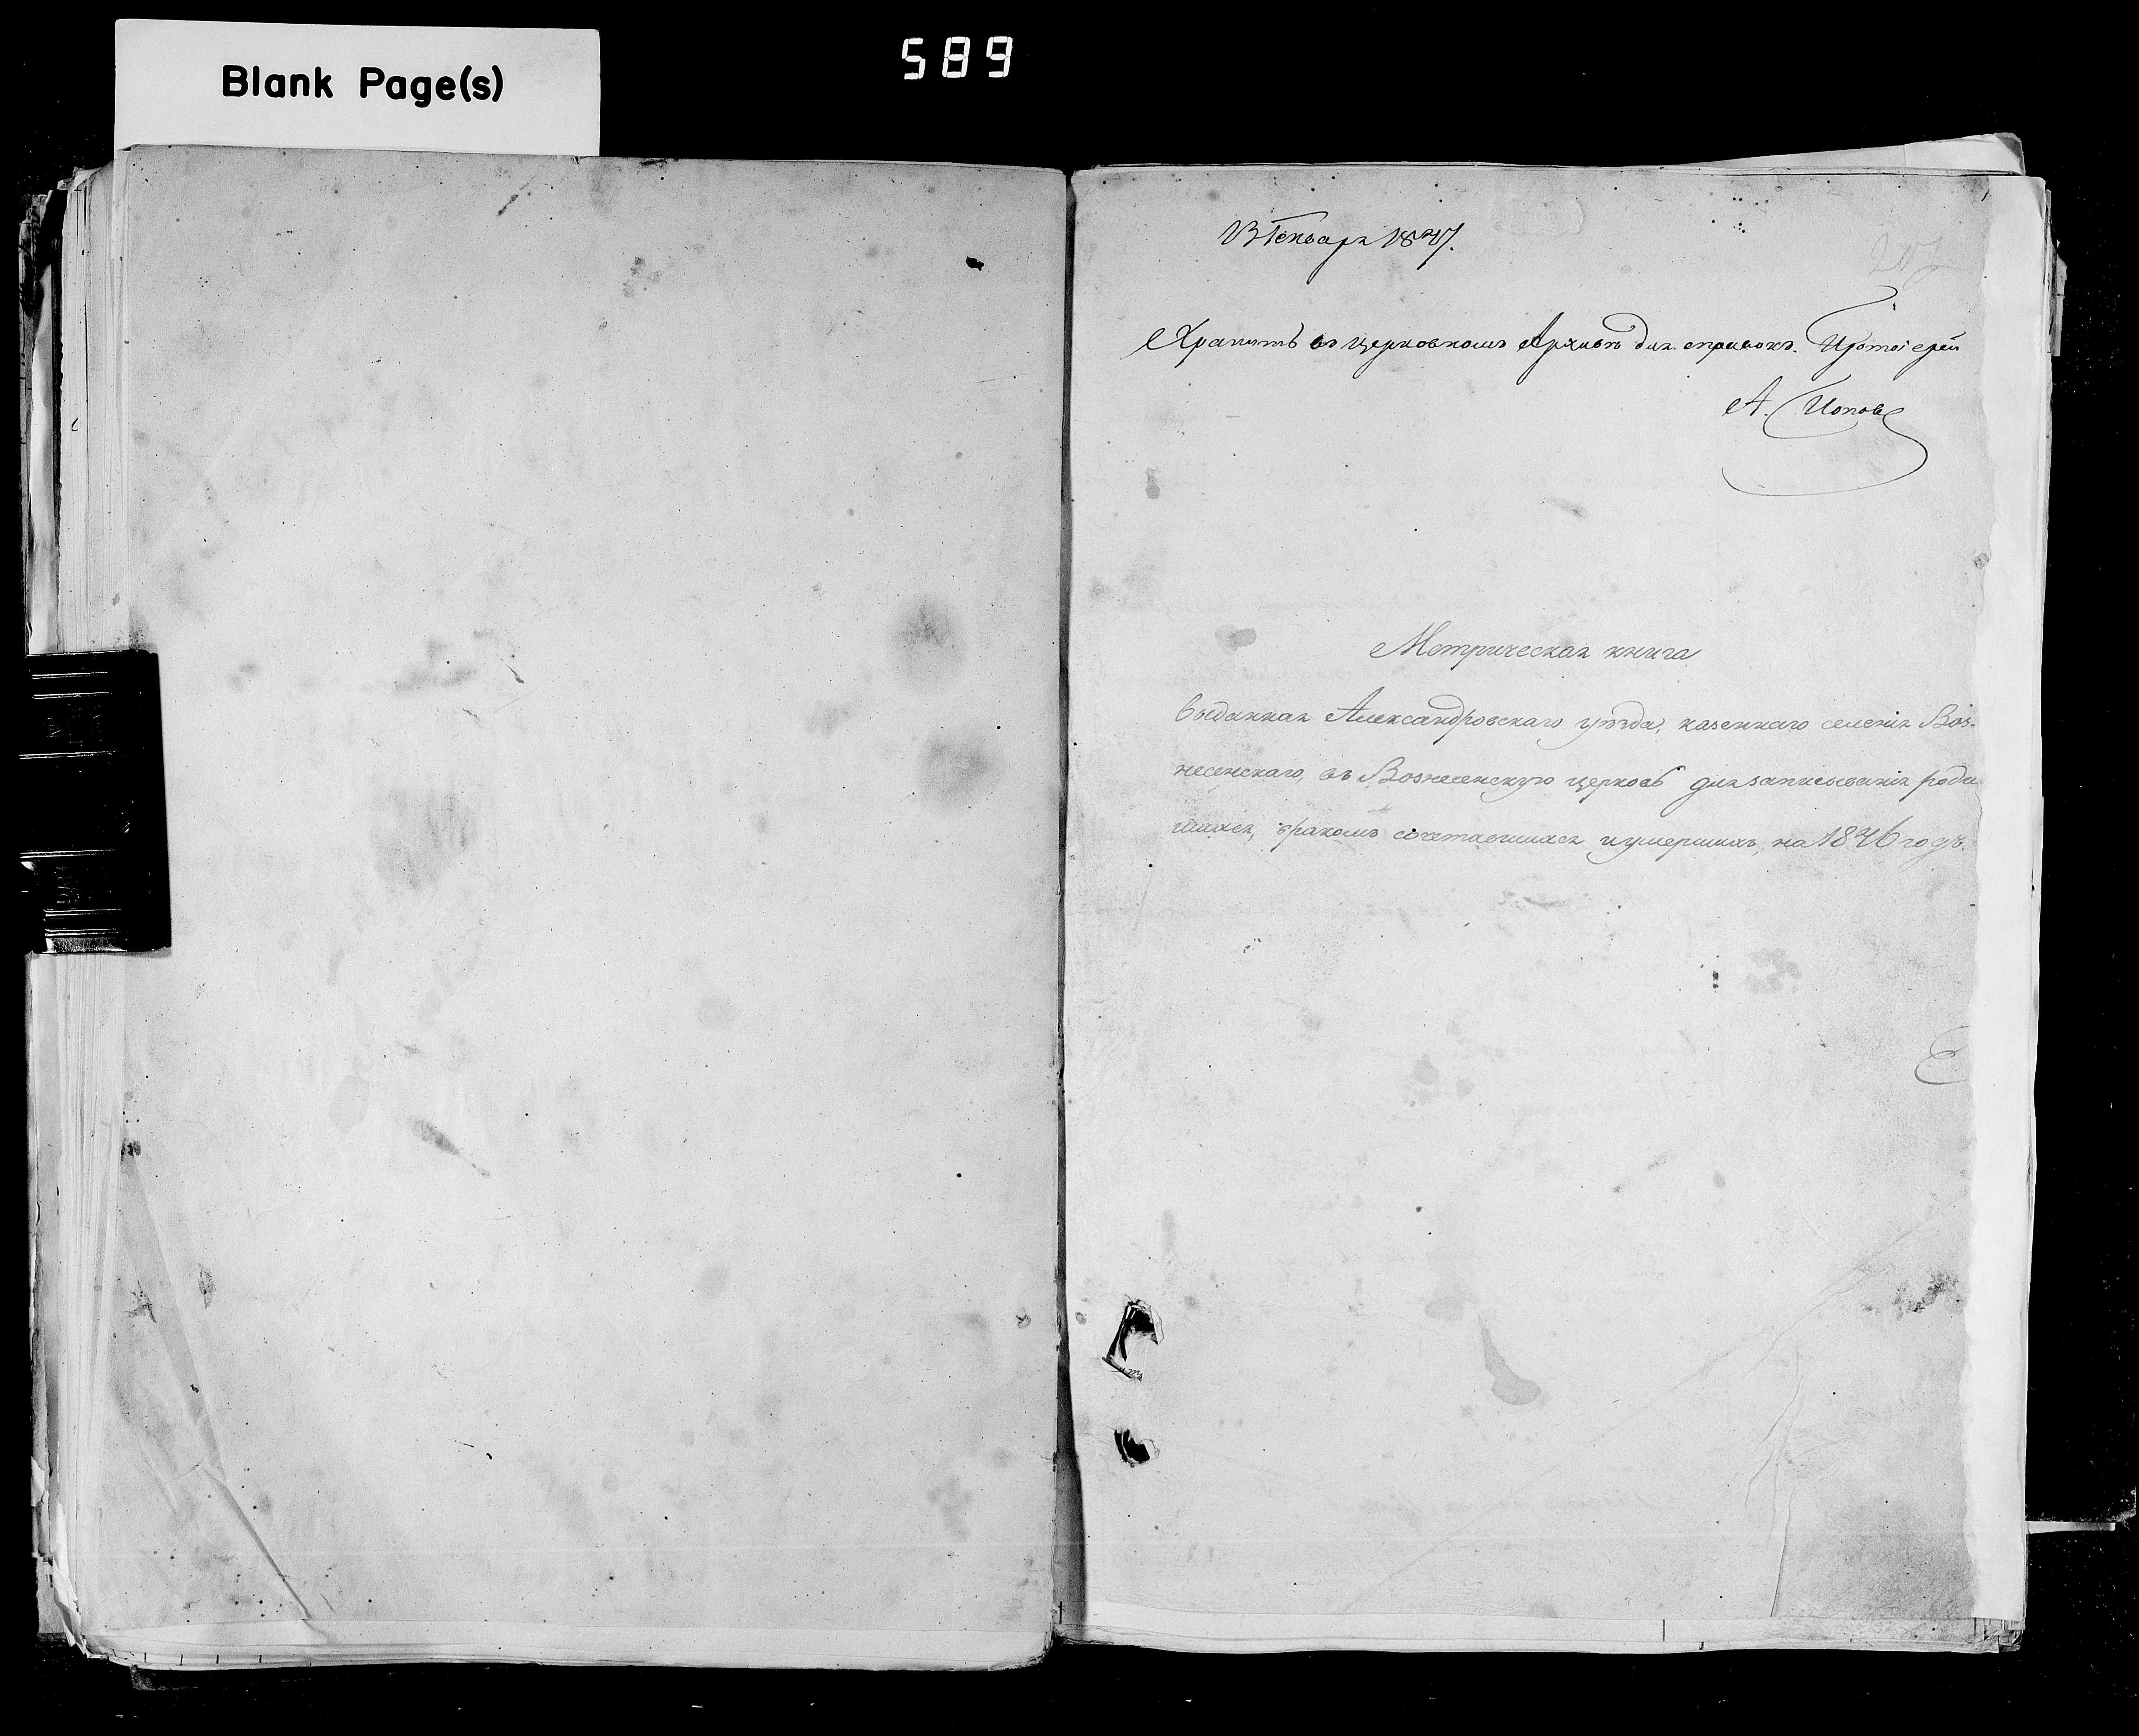 Blank Page(s)
589
13 Генваря 1847.
Хранить въ церковномъ Архивѣ для справокъ. Протоіерей
А. Поповъ
Метрическая книга
выданная Александровскаго уѣзда, казеннаго селенія Воз-
несенскаго, въ Вознесенскую церковь для записыванія роди
шихся, бракомъ сочетавшихся и умершихъ, на 1846 годъ.